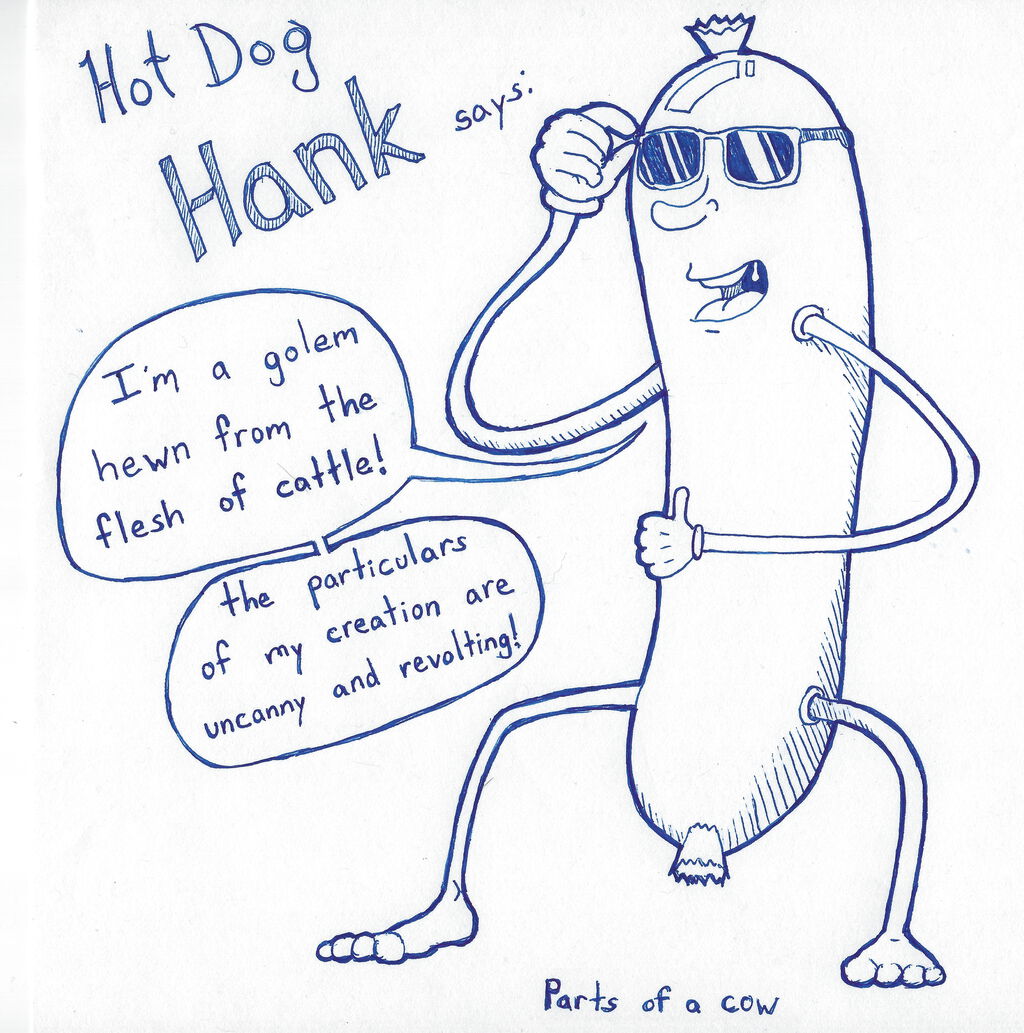 Hot Dog
Hank
says:
I'm a golem
hewn from the
flesh of cattle!
the particulars
of my creation are
uncanny and revolting!
Parts of a cow